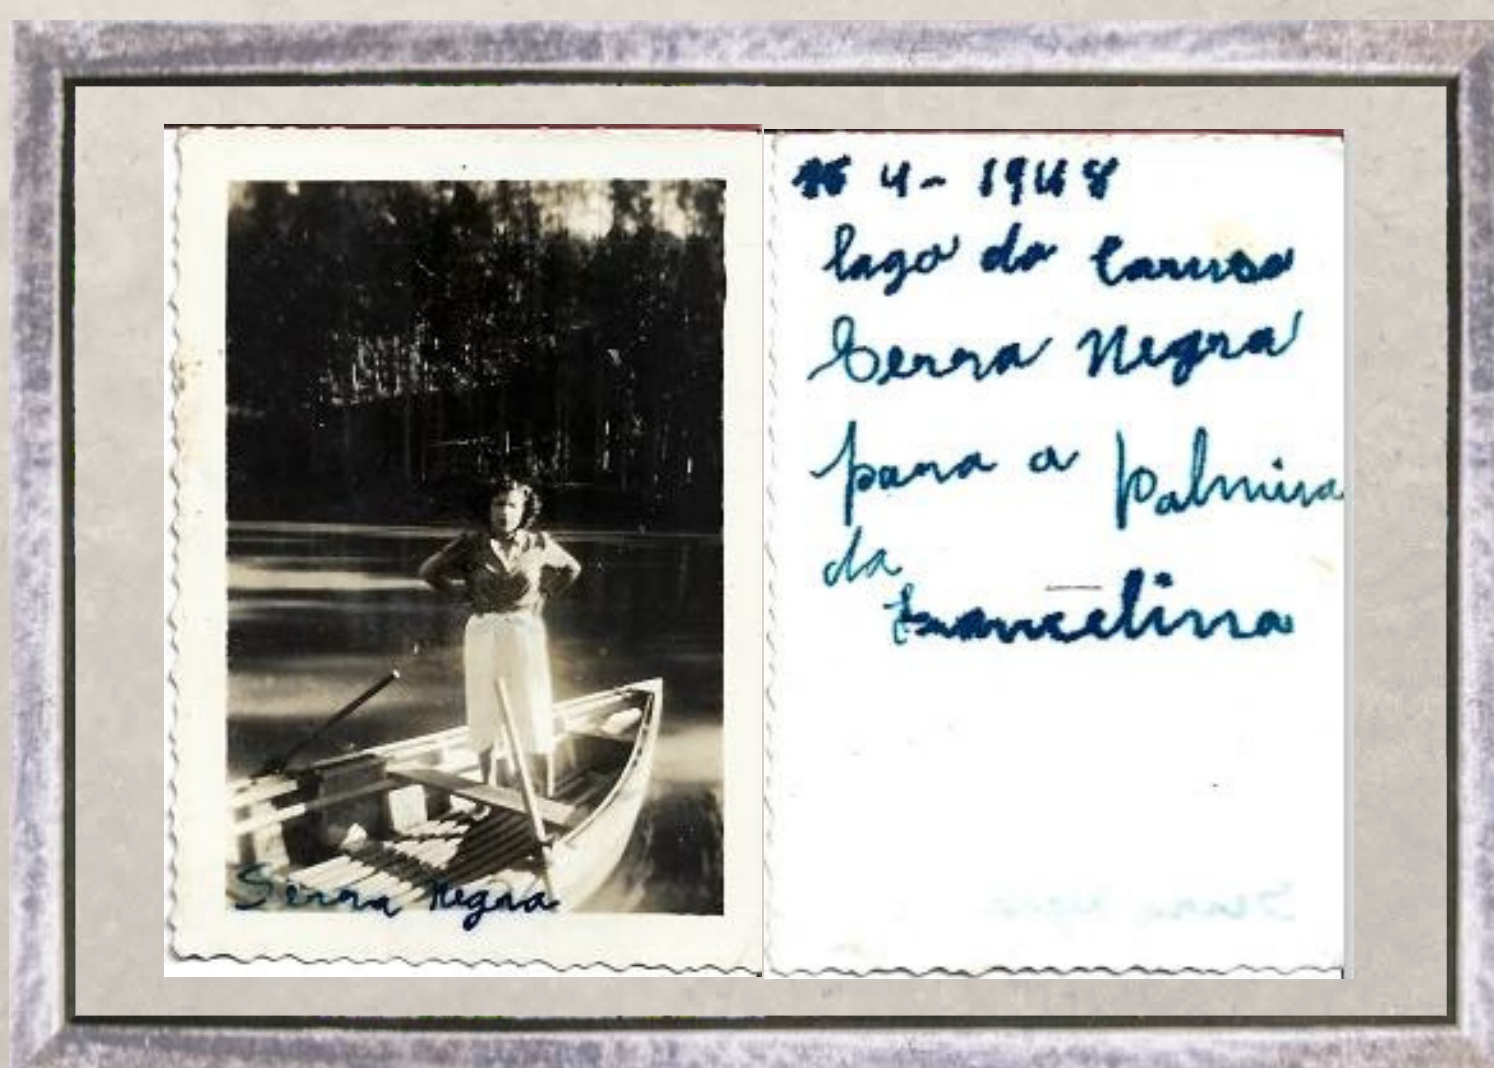 Serra Negra
4 - 1948
lago do Caruso
Serra Negra
para a Palmira
da
Francelina